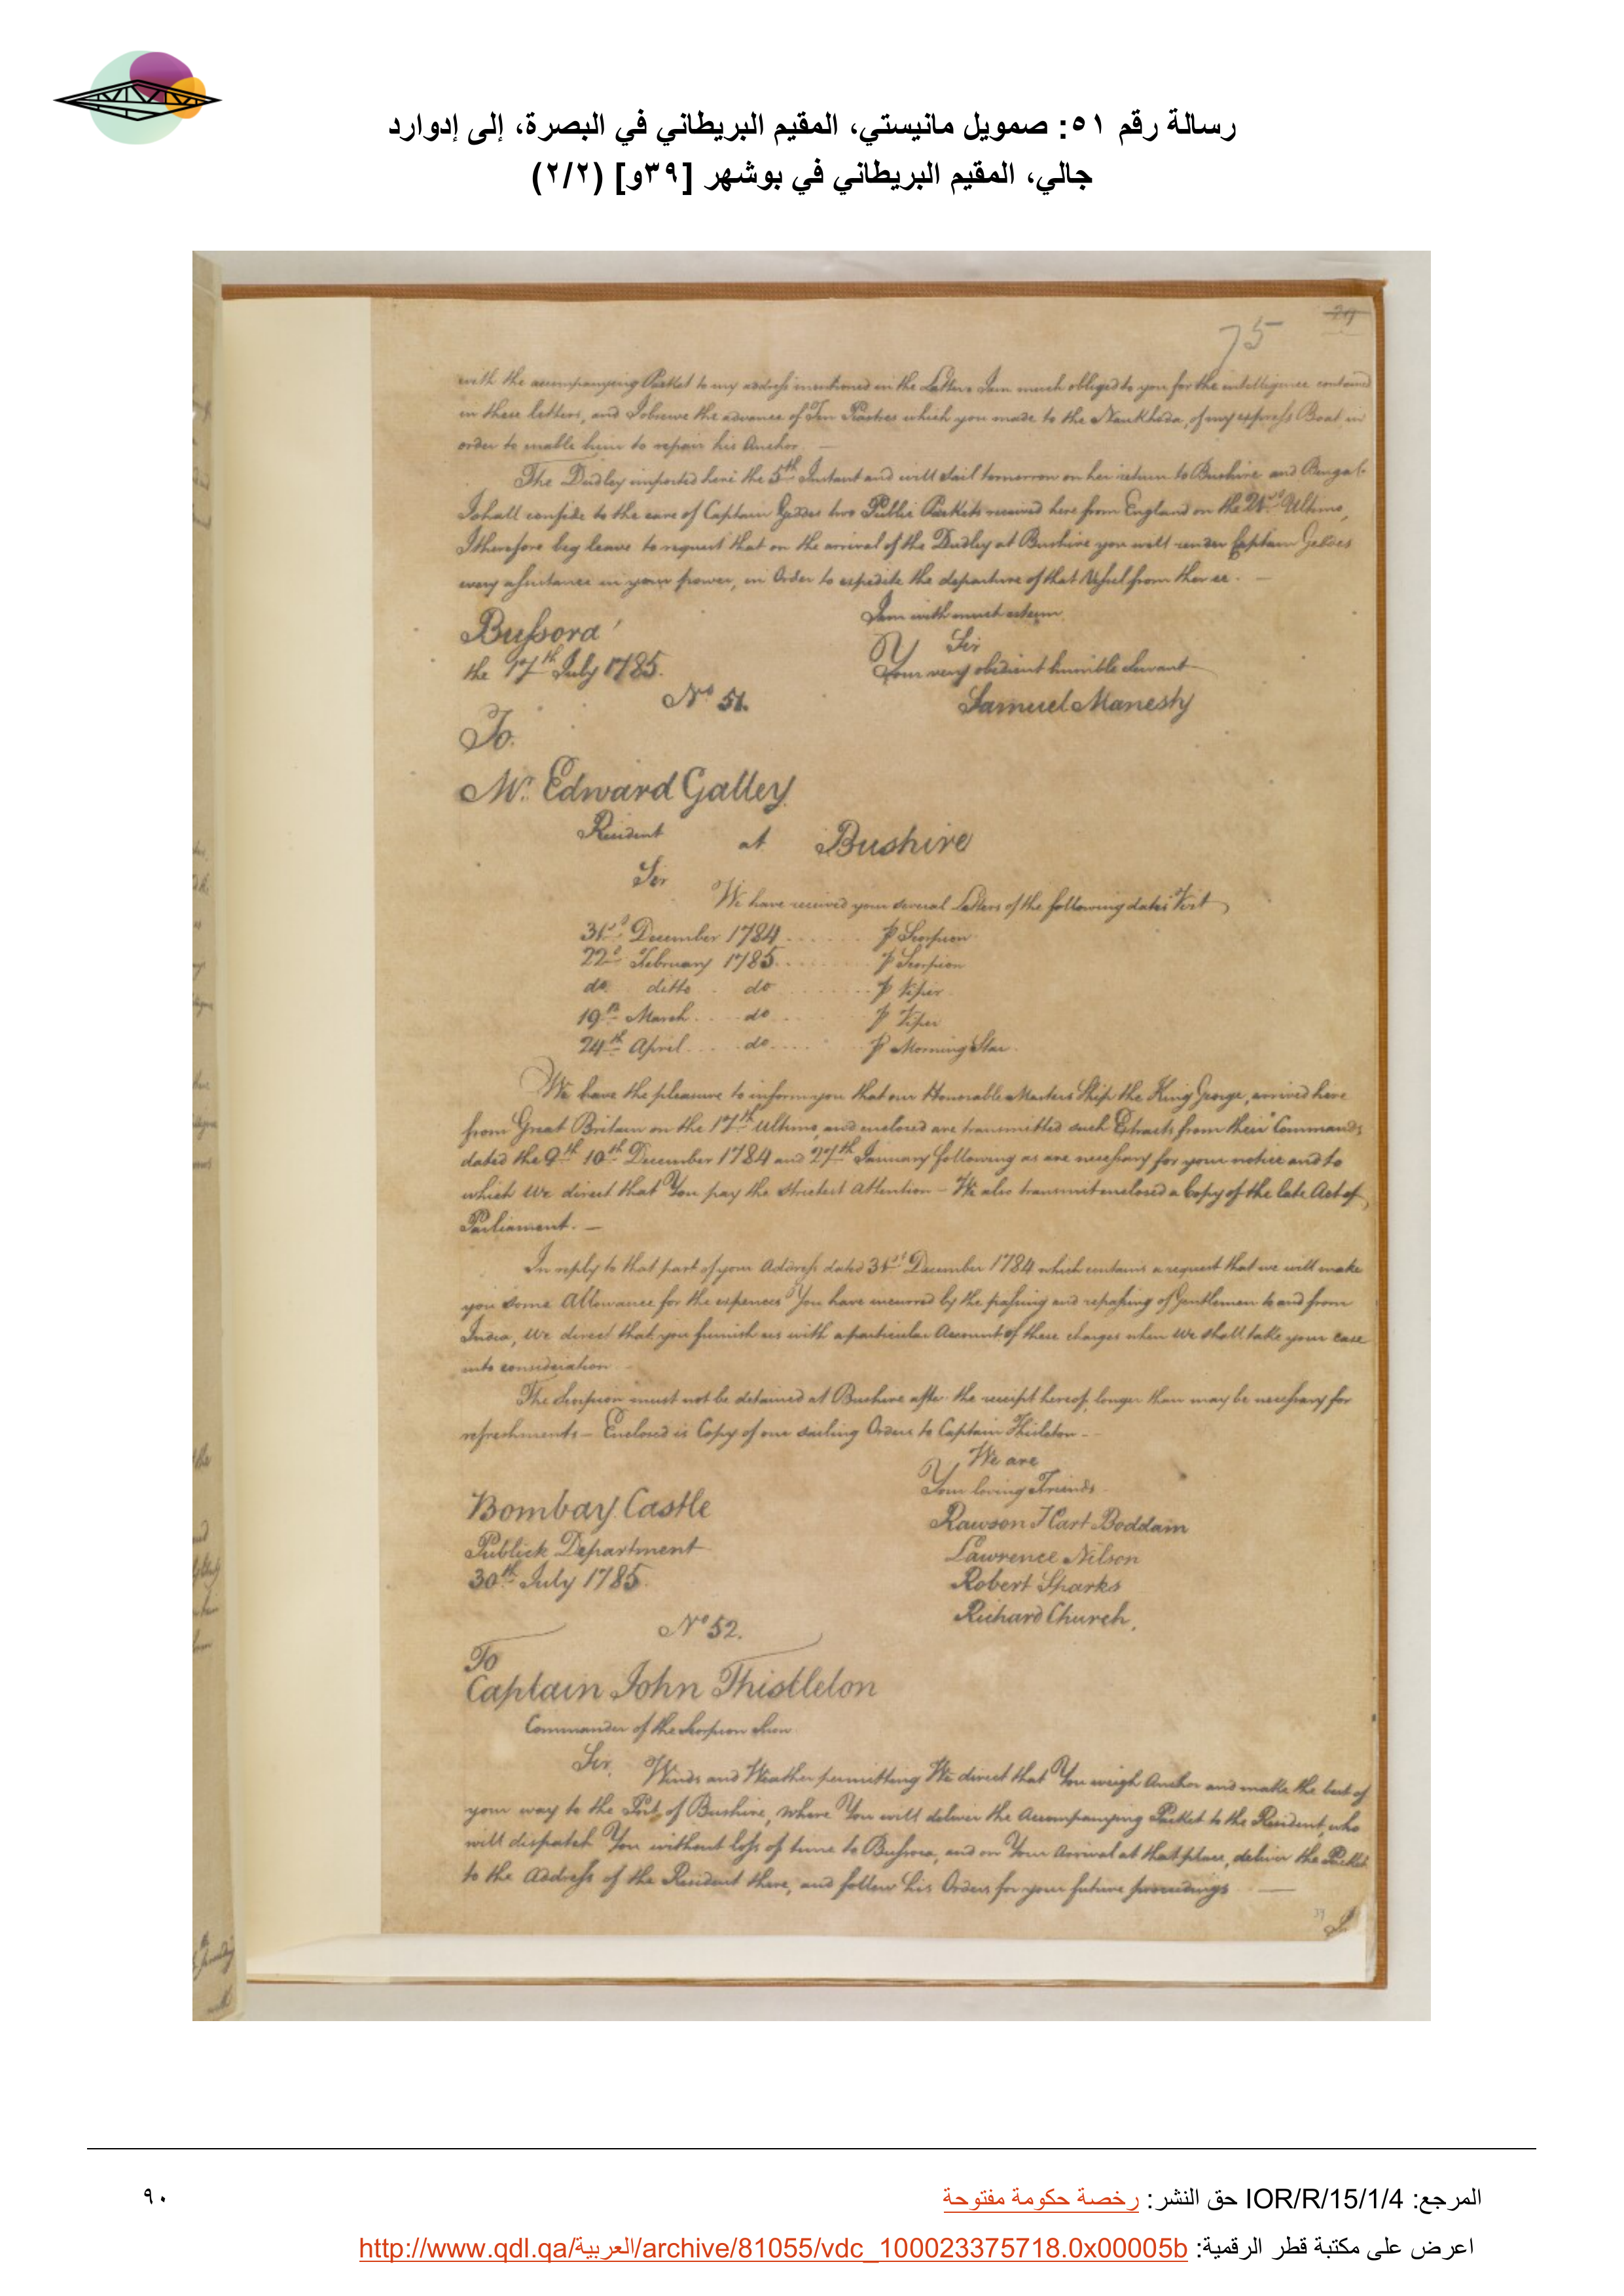 رسالة رقم ٥١: صمويل مانيستي، المقيم البريطاني في البصرة، إلى إدوارد
جالي، المقيم البريطاني في بوشهر [٣٩و] (٢/٢)
75
with the accompanying Packet to my address mentioned in the Letters I am much obliged to you for the intelligence contained
in these letters, and I observe the advance of Ten Piastres which you made to the Naukhoda, of my express Boat in
order to enable him to repair his Anchor. —
The Dudley imported here the 5th Instant and will sail tomorrow on her return to Bushire and Bengal
I shall confide to the care of Captain Geddes two Public Packets received here from England on the Ultimo,
I therefore beg leave to request that on the arrival of the Dudley at Bushire you will render Captain Geddes
every assistance in your power, in Order to expedite the departure of that Vessel from thence. —
I am with much esteem
Bussora
Sir
the 17th July 1785.
Your very obedient humble Servant
No 51.
Samuel Manesty
To
Mr. Edward Galley
Resident at Bushire
Sir
We have received your several Letters of the following dates Vizt
31st December 1784 ........ ⅌ Scorpion
22d February 1785 ........ ⅌ Scorpion
do ditto . do ........ ⅌ Viper
19th March .... do ........ ⅌ Viper
24th April .... do .... ⅌ Morning Star
We have the pleasure to inform you that our Honorable Masters Ship the King George, arrived here
from Great Britain on the 17th Ultimo, and enclosed are transmitted such Extracts from their Commands
dated the 9th 10th December 1784 and 27th January following as are necessary for your notice and to
which We direct that You pay the strictest Attention — We also transmit enclosed a Copy of the late Act of
Parliament. —
In reply to that part of your Address dated 31st December 1784 which contains a request that we will make
you some Allowance for the expences You have incurred by the passing and repassing of Gentlemen to and from
India, We direct that you furnish us with a particular Account of these charges when We shall take your case
into consideration
The Scorpion must not be detained at Bushire after the receipt hereof, longer than may be necessary for
refreshments — Enclosed is Copy of our sailing Orders to Captain Thistleton —
We are
Your loving Friends
Bombay Castle
Rawson Hart Boddam
Publick Department
Lawrence Nilson
30th July 1785
Robert Sparks
Richard Church,
No 52.
To
Captain John Thistleton
Commander of the Scorpion Snow
Sir, Winds and Weather permitting We direct that You weigh Anchor and make the best of
your way to the Port of Bushire, Where You will deliver the Accompanying Packet to the Resident, who
will dispatch You without loss of time to Bussora, and on Your Arrival at that place, deliver the Packet
to the Address of the Resident there, and follow his Orders for your future proceedings —
39
المرجع: IOR/R/15/1/4 حق النشر: رخصة حكومة مفتوحة
٩٠
اعرض على مكتبة قطر الرقمية: http://www.qdl.qa/العربية/archive/81055/vdc_100023375718.0x00005b